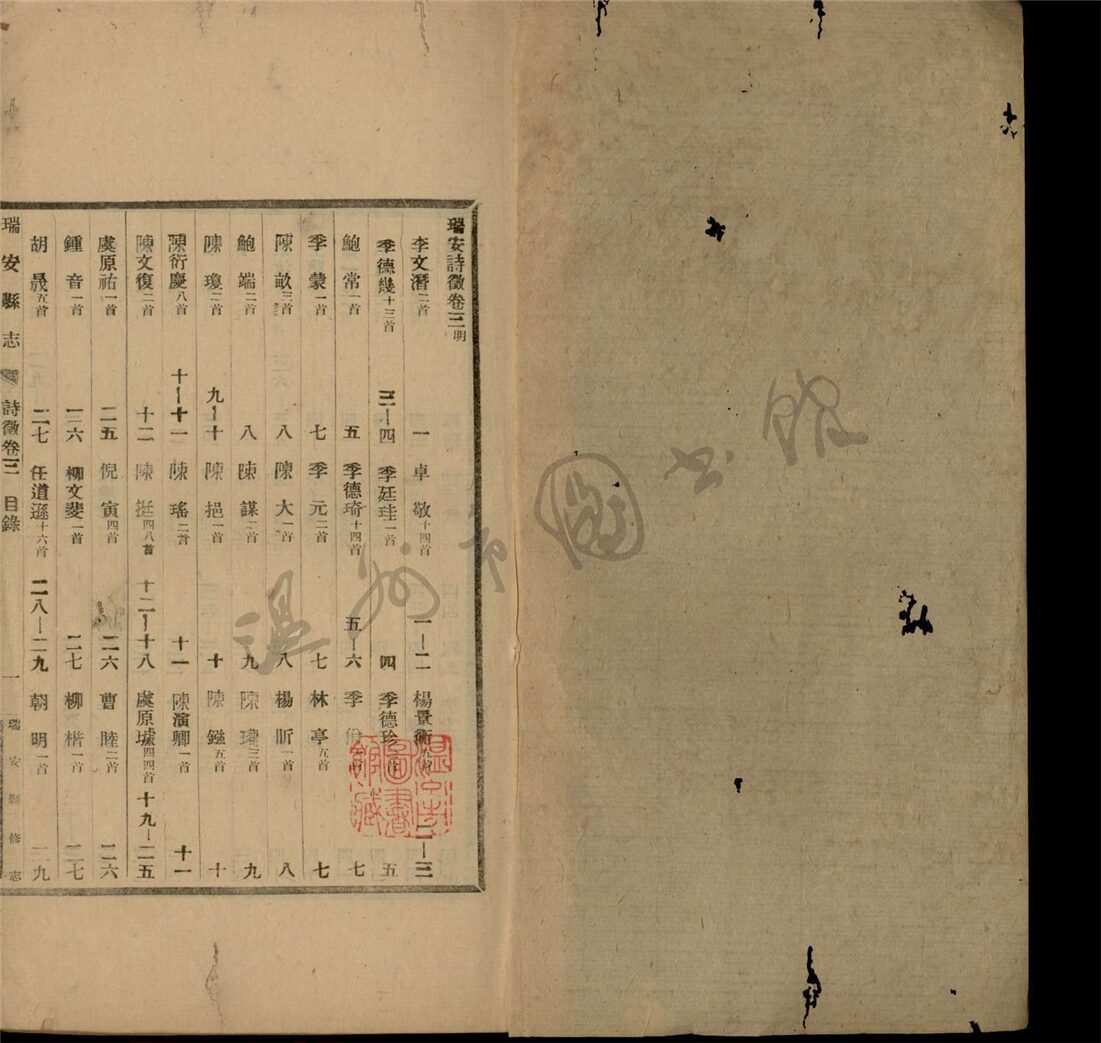 瑞安詩徵卷三明
李文潛二首 一 卓敬十四首 一－二 楊景衡九首 二－三
季德幾十三首 三－四 季廷珪一首 四 季德珍 首 五
鮑常一首 五 季德琦十四首 五－六 季 首 七
季蒙一首 七 季元二首 七 林亭五首 七
陳畝三首 八 陳大一首 八 楊昕一首 八
鮑端二首 八 陳謀二首 九 陳瓊三首 九
陳瓊二首 九－十 陳挹一首 十 陳鎰五首 十
陳衍慶八首 十－十一 陳瑤二首 十一 陳演卿一首 十一
陳文復二首 十二 陳挺四八首 十二－十八 虞原璩四四首 十九－二五
虞原祐一首 二五 倪寅四首 二六 曹睦二首 二六
鍾音一首 二六 柳文斐一首 二七 柳楷一首 二七
胡晟五首 二七 任道遜十六首 二八－二九 朝明一首 二九
瑞安縣志 詩徵卷三 目錄 一 瑞安縣修志
溫州市圖書館
溫州市圖書館藏